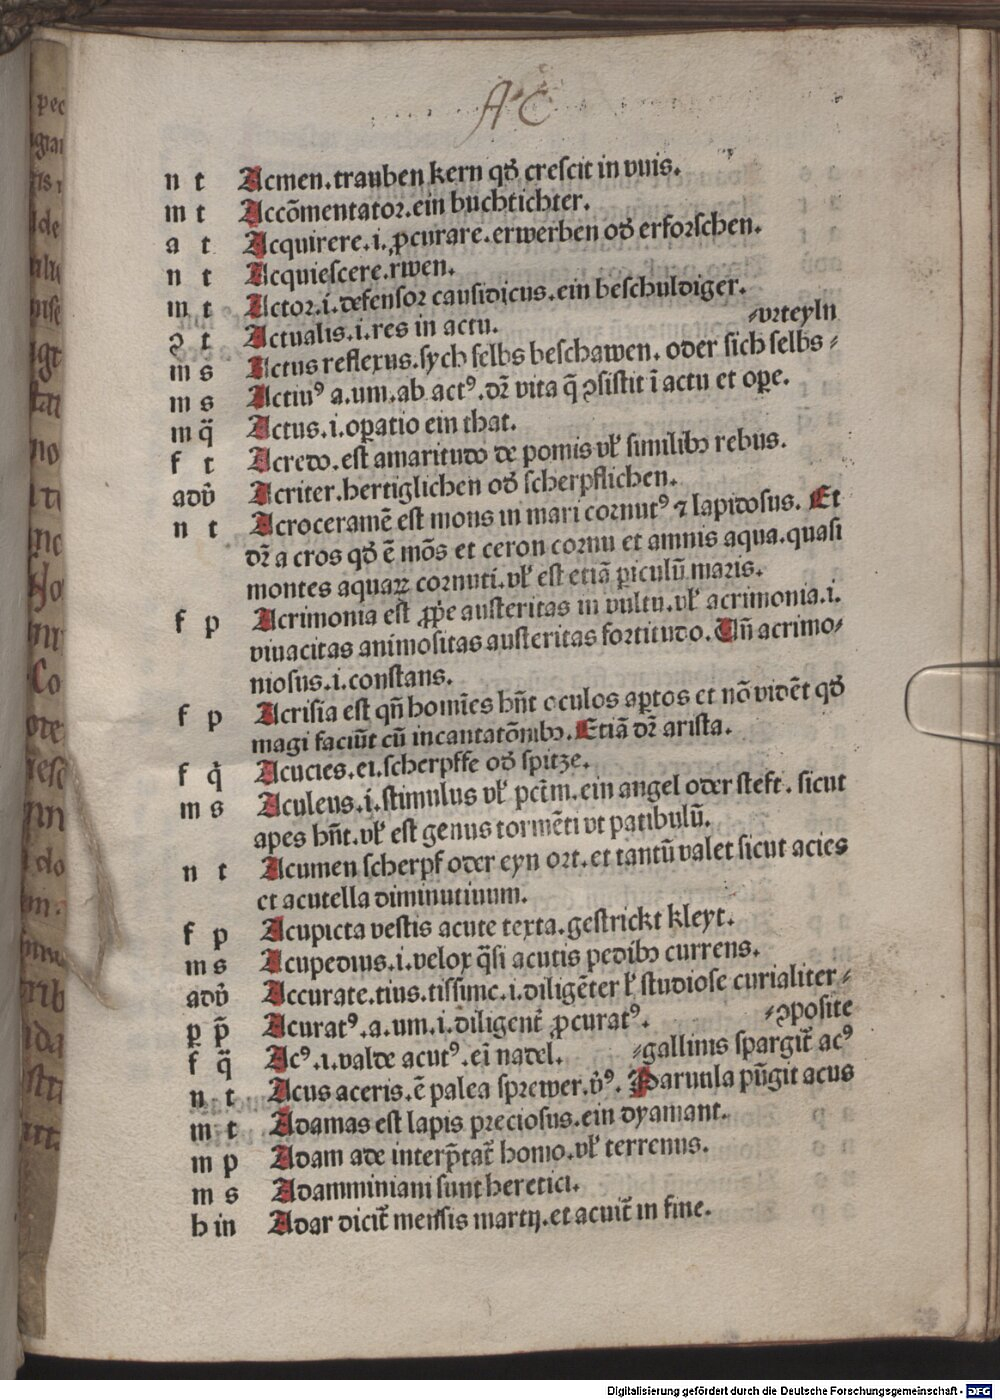 AC
n t Acmen.trauben kern qð creſcit in vuis.
m t Accõmentatoꝛ.ein buchtichter.
a t Acquirere.i.ꝓcurare.erwerben oð erforſchen.
n t Acquieſcere.rwen.
m t Actor.i.defenſoꝛ cauſidicus.ein beſchuldiger.
ꝯ t Actualis.i.res in actu. ⸗vrteyln
m s Actus reflexus.ſych ſelbs beſchawen. oder ſich ſelbs⸗
m s Actiuꝰ a.um.ab actꝰ.dr̃ vita q̃ ꝯſiſtit ĩ actu et oꝑe.
m q̈ Actus.i.oꝑatio ein that.
f t Acredo.eſt amaritudo de pomis vl̕ ſimilibꝫ rebus.
adv̉ Acriter.hertiglichen oð ſcherpflichen.
n t Acroceramẽ eſt mons in mari cornutꝰ ⁊ lapidoſus. Et
dr̃ a cros qð ẽ mõs et ceron cornu et amnis aqua.quaſi
montes aquaꝝ cornuti.vl̕ eſt etiã ꝑiculũ maris.
f p Acrimonia eſt ꝓṕe auſteritas in vultu.vl̕ acrimonia.i.
viuacitas animoſitas auſteritas fortitudo. Vñ acrimo⸗
nioſus.i.conſtans.
f p Acriſia eſt qñ homĩes hñt oculos aꝑtos et nõ vidẽt qð
magi faciũt cũ incantatõnibꝫ. Etiã dr̃ ariſta.
f q̉ Acucies.ei.ſcherpffe oð ſpitze.
m s Aculeus.i.ſtimulus vl̕ pct̃m.ein angel oder ſteft. ſicut
apes hñt.vl̕ eſt genus tormẽti vt patibulũ.
n t Acumen ſcherpf oder eyn ort.et tantũ valet ſicut acies
et acutella diminutiuum.
f p Acupicta veſtis acute texta.geſtrickt kleyt.
m s Acupedius.i.velox q̃ſi acutis pedibꝫ currens.
adv̉ Accurate.tius.tiſſime.i.diligẽter l̕ ſtudioſe curialiter⸗
ꝑ p̃ Acuratꝰ.a.um.i.diligent̃ ꝓcuratꝰ. ⸗ꝯpoſite
f q̈ Acꝰ.i.valde acutꝰ.eĩ nadel. ⸗gallinis ſpargit̃ acꝰ
n t Acus aceris.ẽ palea ſprewer.v̉ꝰ. Paruula pũgit acus
m t Adamas eſt lapis precioſus.ein dyamant.
m p Adam ade interp̃tat̃ homo.vl̕ terrenus.
m s Adamminiani ſunt heretici.
b in Adar dicit̃ menſis martij.et acuit̃ in fine.
Digitalisierung gefördert durch die Deutsche Forschungsgemeinschaft - DFG